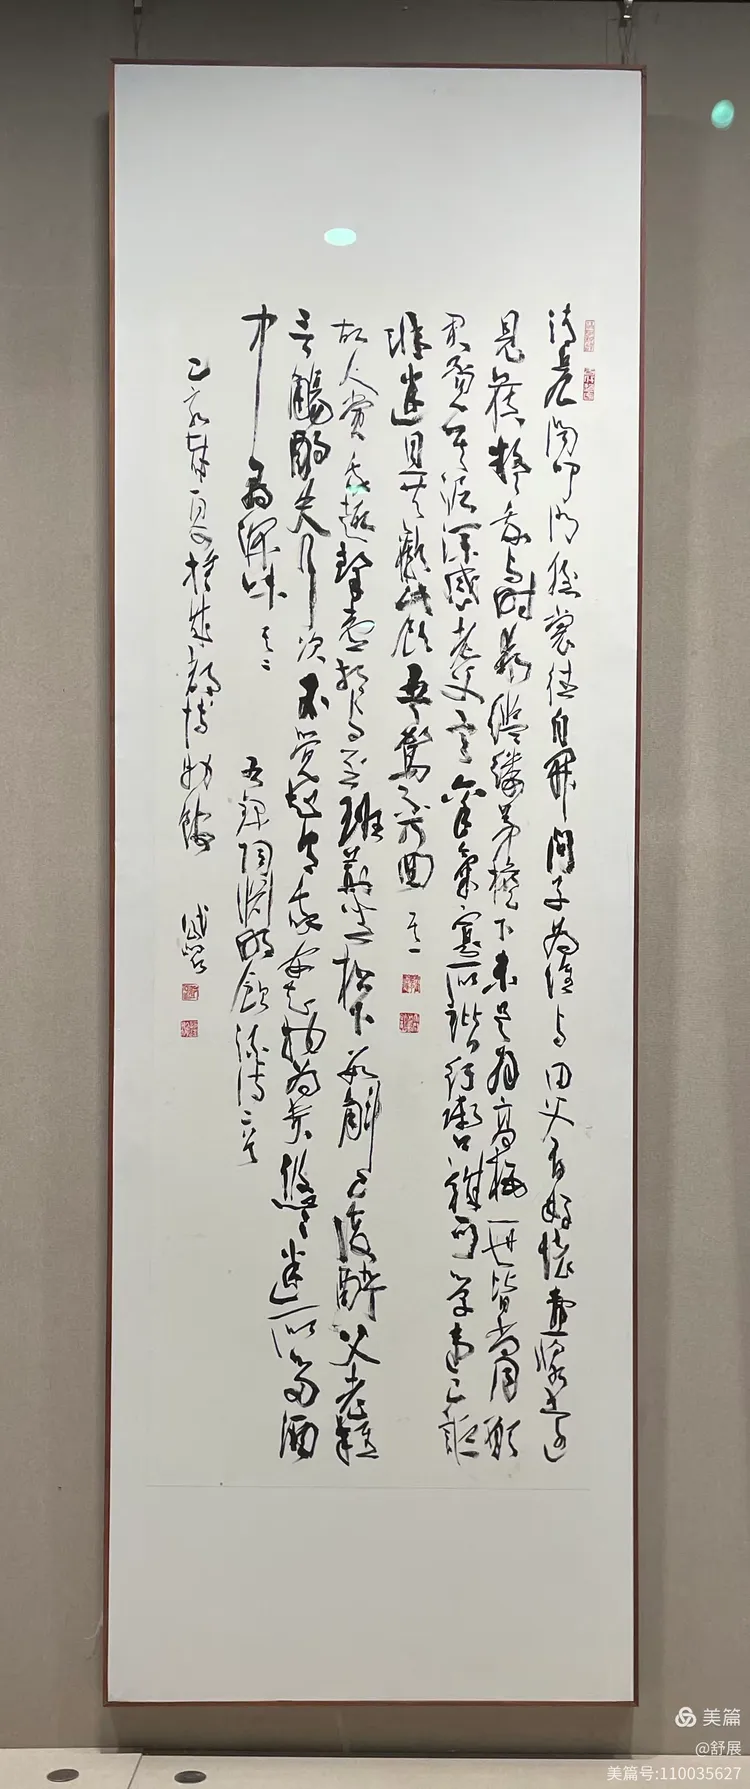 清晨闻叩门倒裳往自开问子为谁与田父有好怀壶浆远
见候疑我与时乖褴缕茅檐下未足为高栖一世皆尚同愿
君汩其泥深感老父言禀气寡所谐纡辔诚可学违己讵
非迷且共欢此饮吾驾不可回 其一
故人赏我趣挈壶相与至班荆坐松下数斟已复醉父老杂
言觞酌失行次不觉觉有我安知物为贵悠悠迷所留酒
中有深味 其二
右录陶渊明饮酒诗二首
乙
夏
博物馆
美篇
@舒展
美篇号:110035627